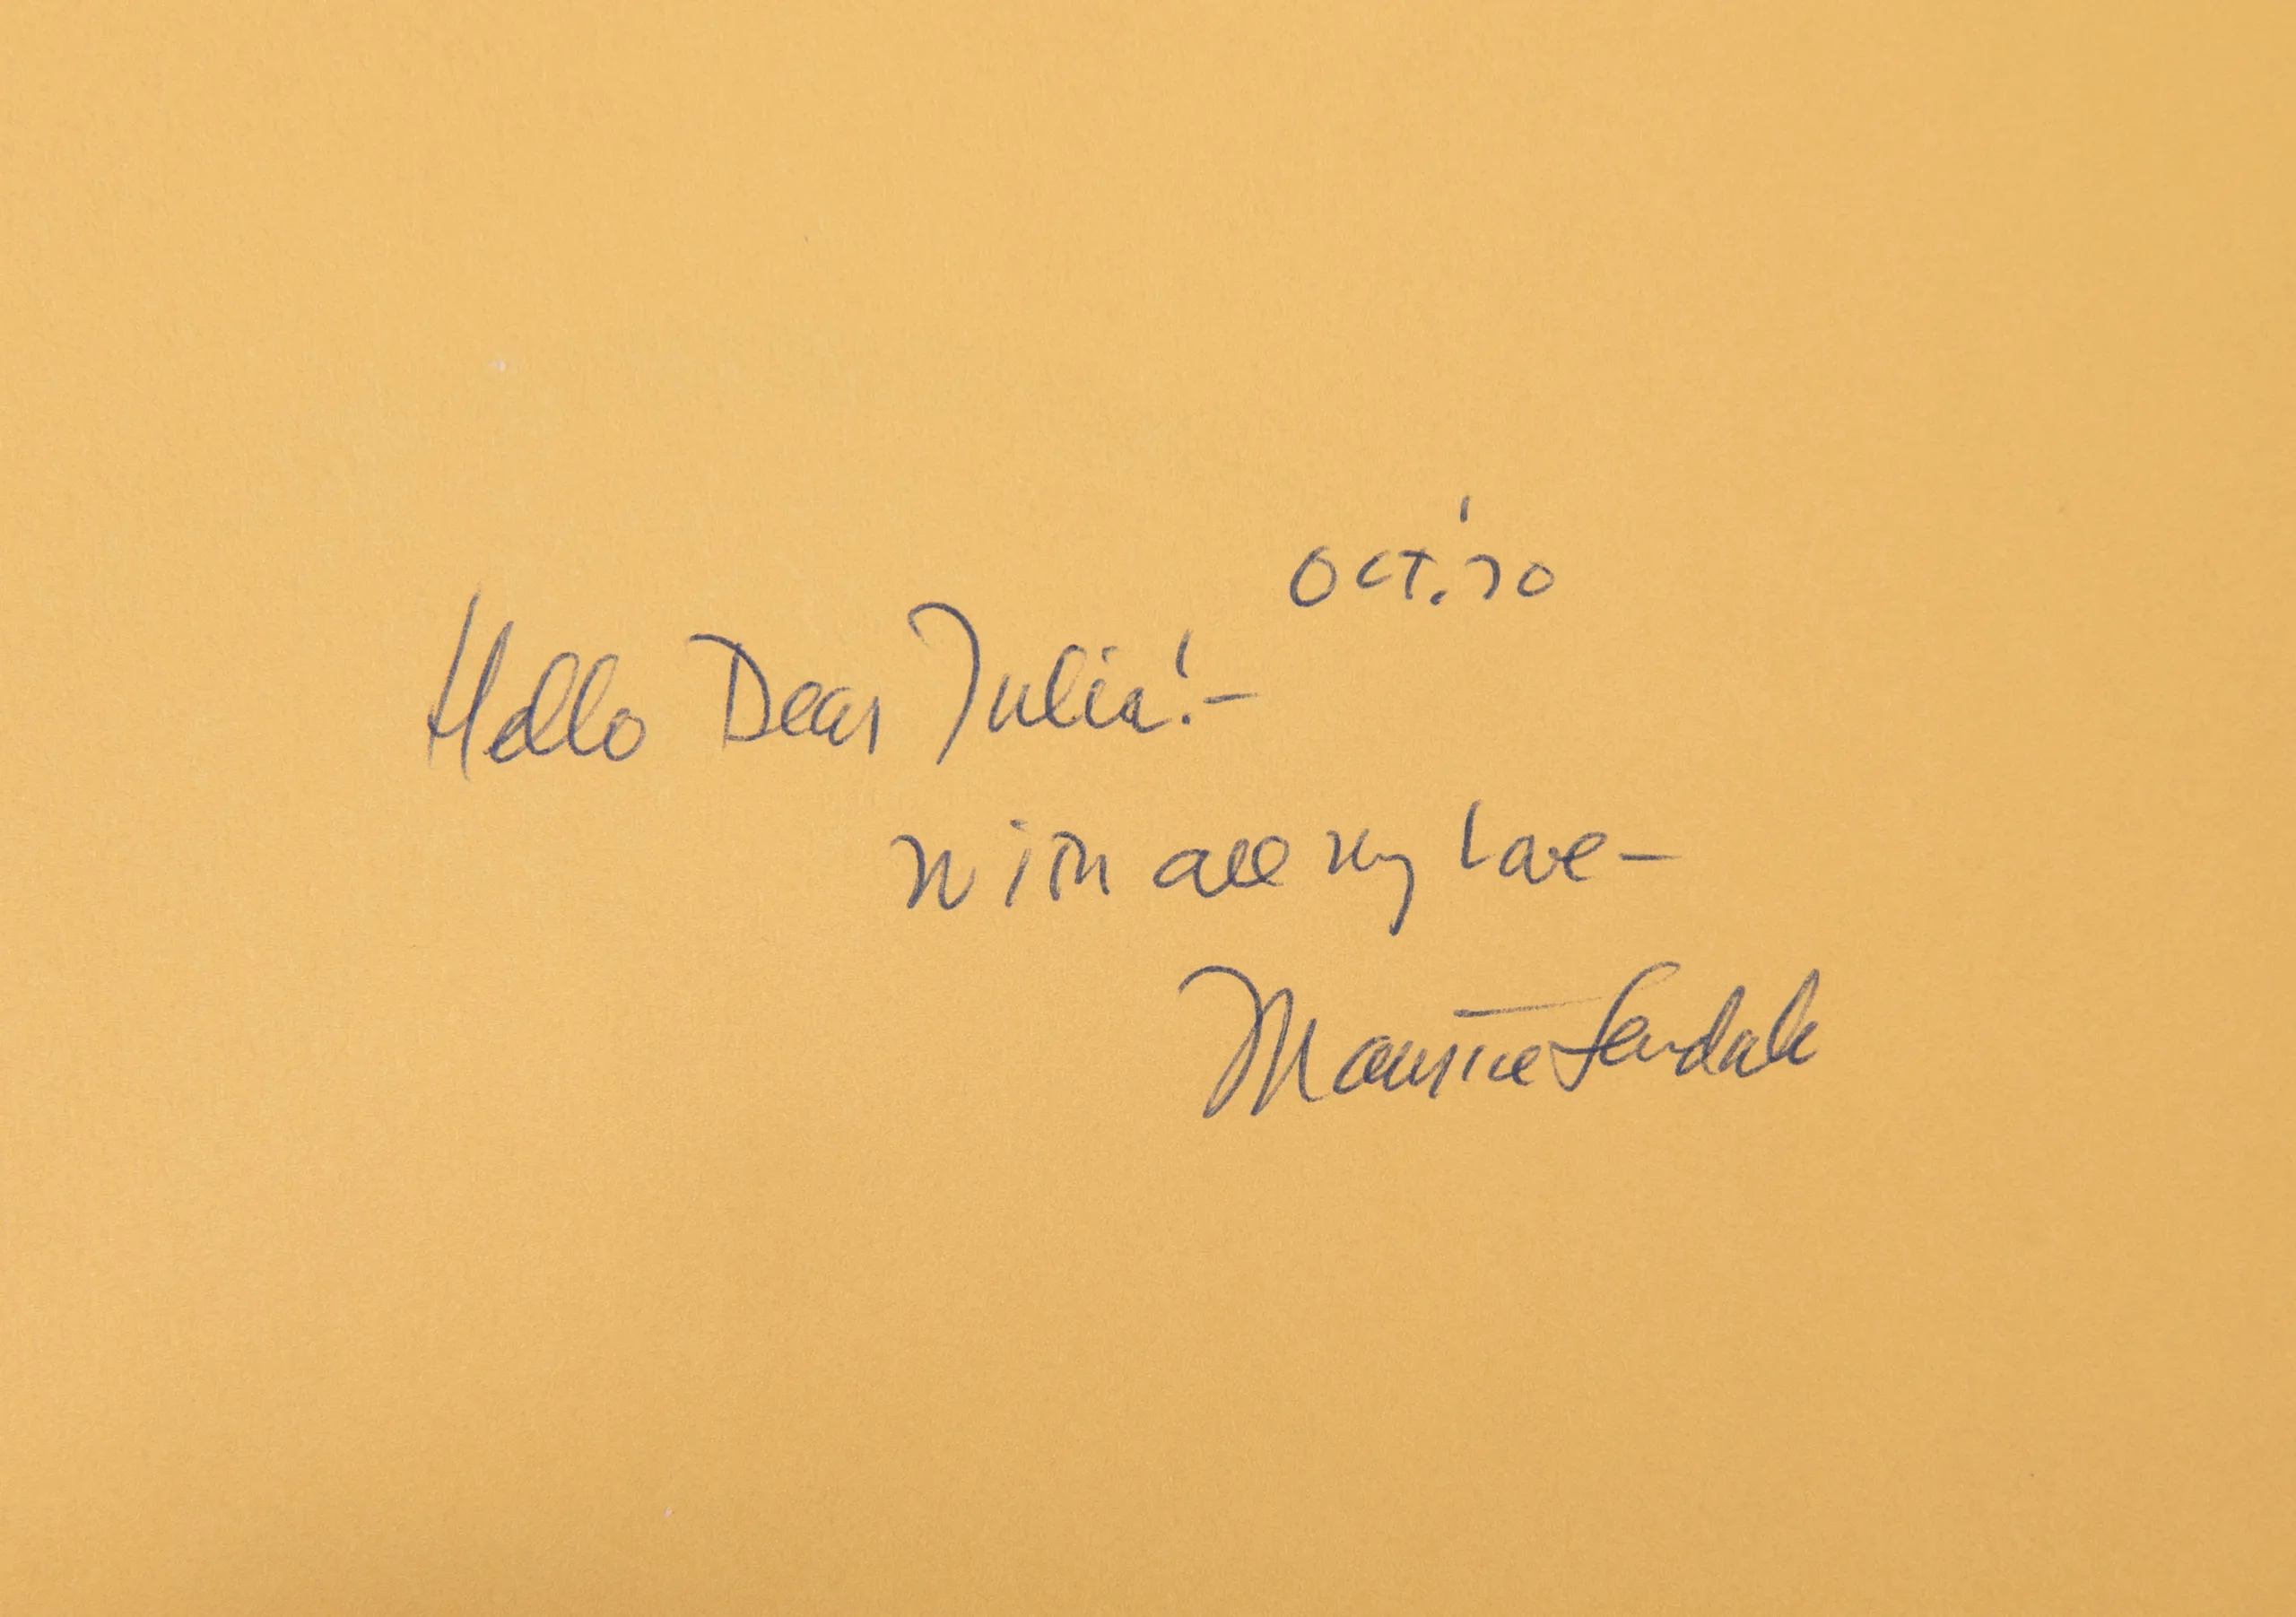 Oct. '70
Hello Dear Julia! –
With all my love –
Maurice Sendak